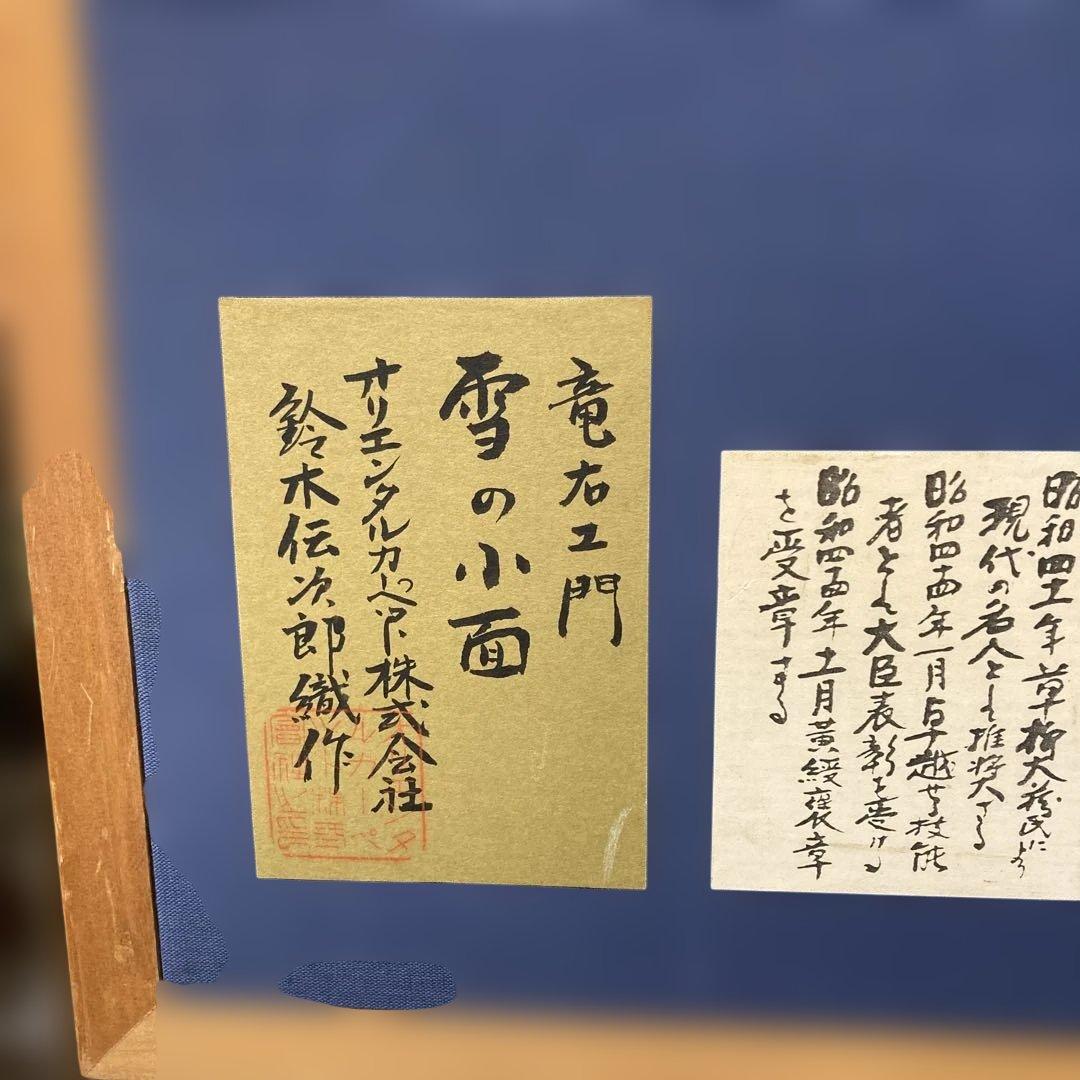 竜右エ門
雪の小面
オリエンタルカーペット株式会社
鈴木伝次郎織作
昭和四十一年草柳大蔵氏により
現代の名人として推奨さる
昭和四十四年一月卓越せる技能
者として大臣表彰を受ける
昭和四十四年十一月黄綬褒章
を受章する